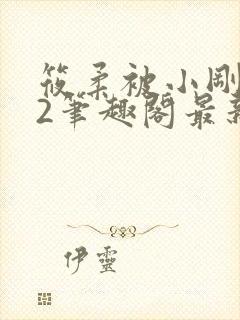 筱柔被小剛
2笔趣閣最新
伊靈